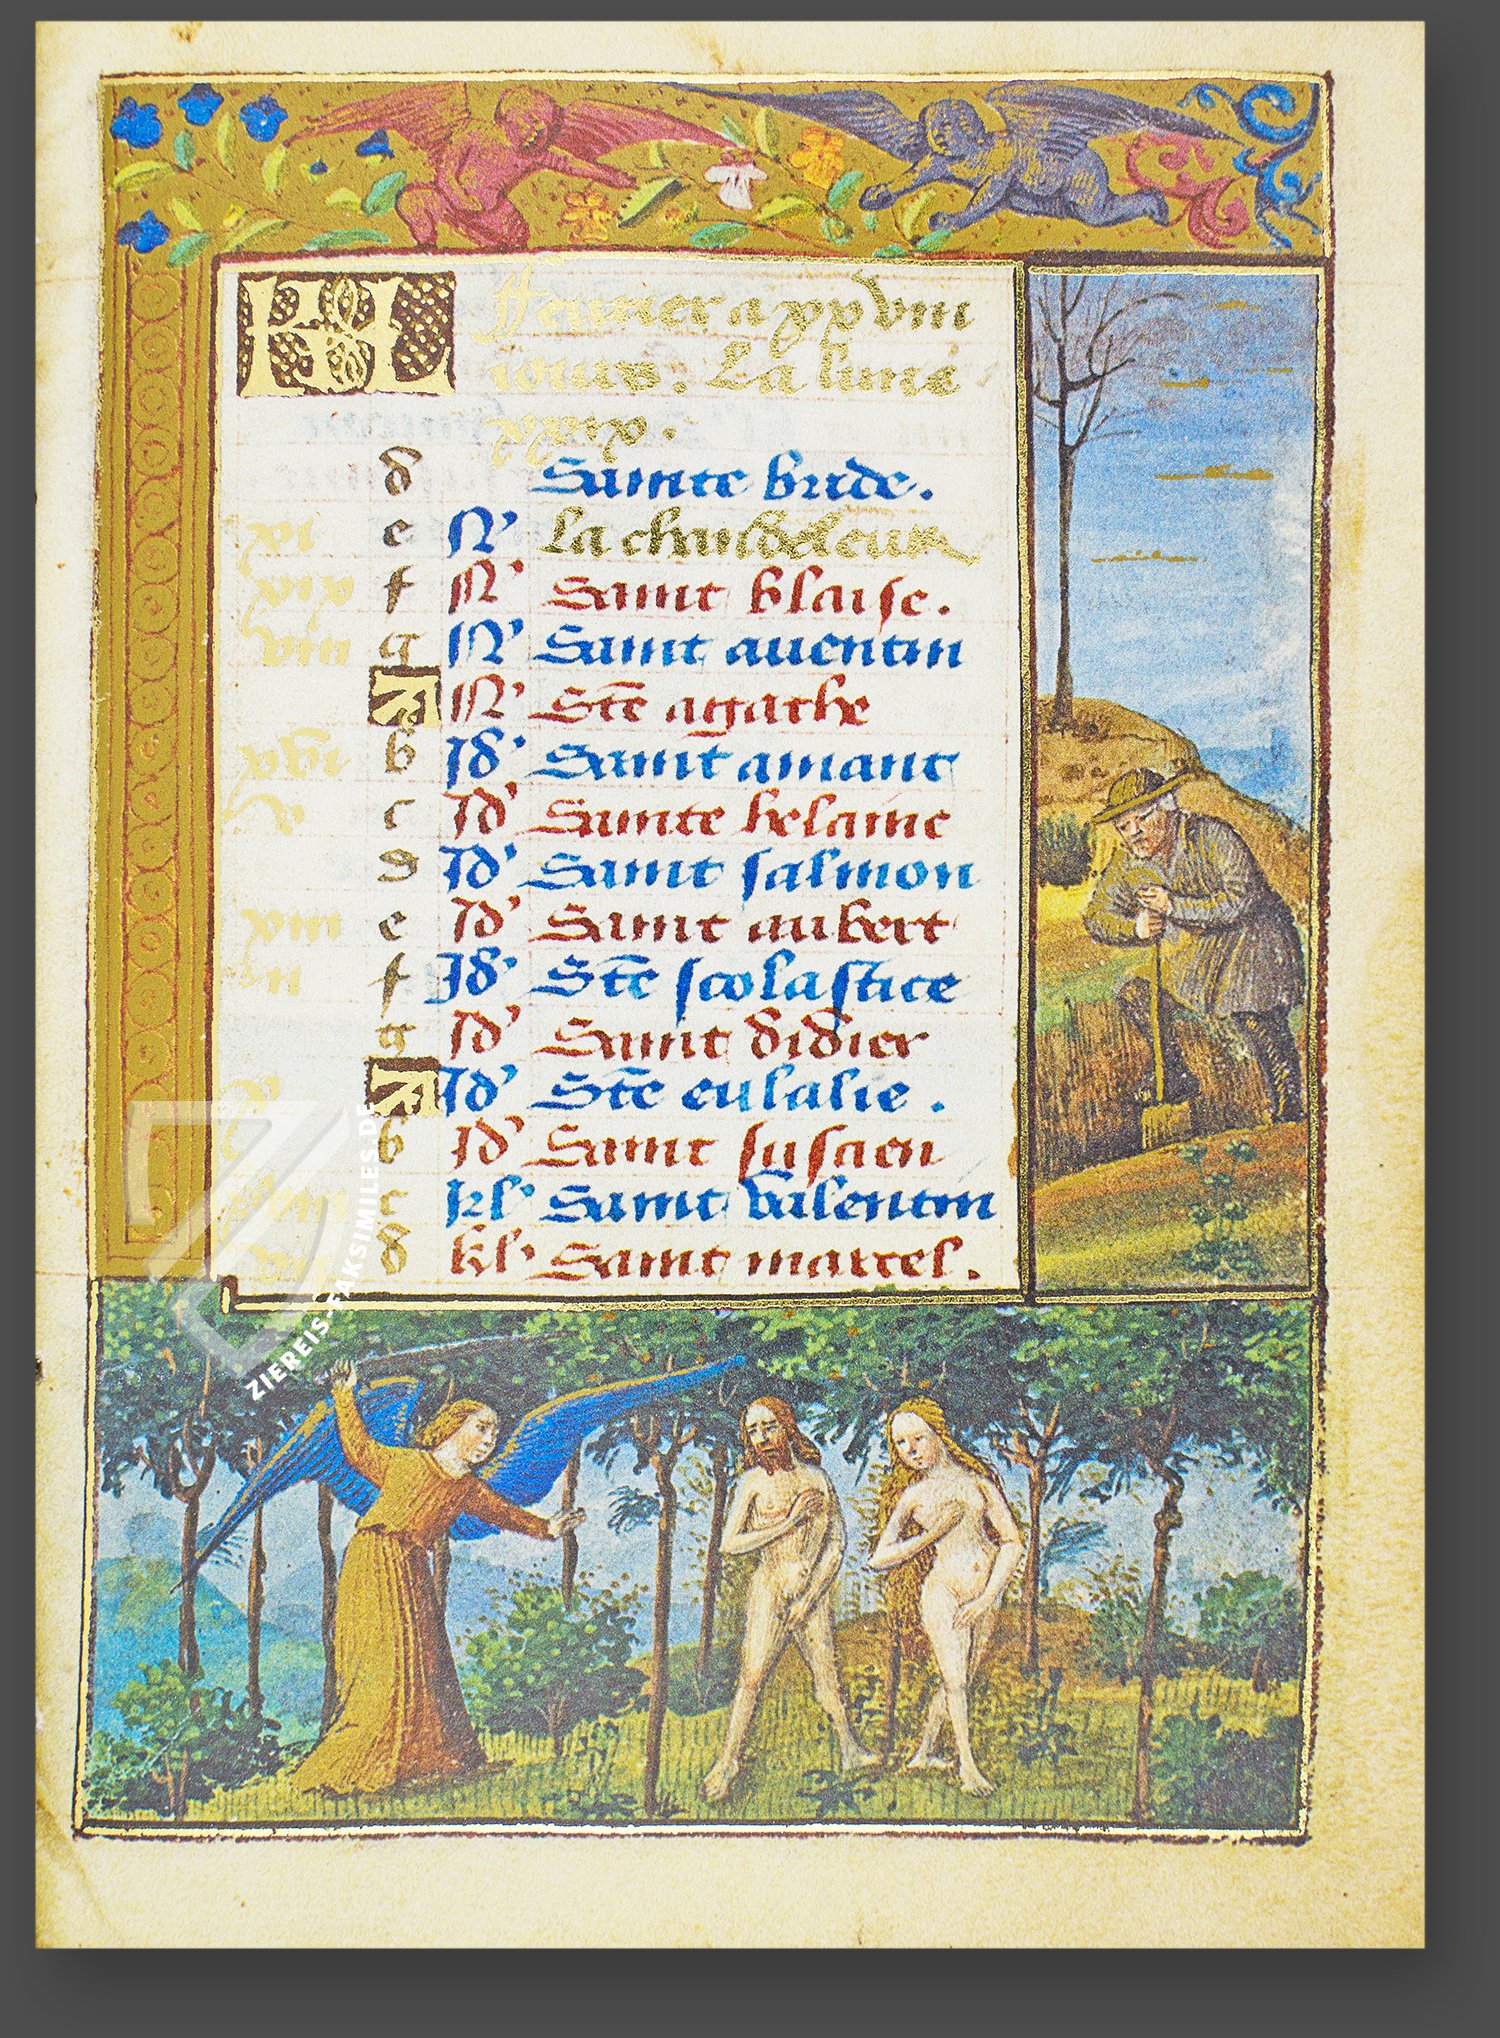 KL feurier a xxviii
iours. La lune
xxix.
d Sainte bride.
xi e N' la chandeleur
xix f N' Saint blaise.
viii g N' Saint auentin
A N' Ste agathe
xvi b Id' Saint amant
v c Id' Sainte helaine
d Id' Saint salmon
xiii e Id' Saint aubert
ii f Id' Ste scolastice
g Id' Saint didier
x A Id' Ste eulalie.
b Id' Saint suscien
c kl' Saint valentin
d kl' Saint marcel.
ZIEREIS-FAKSIMILES.DE